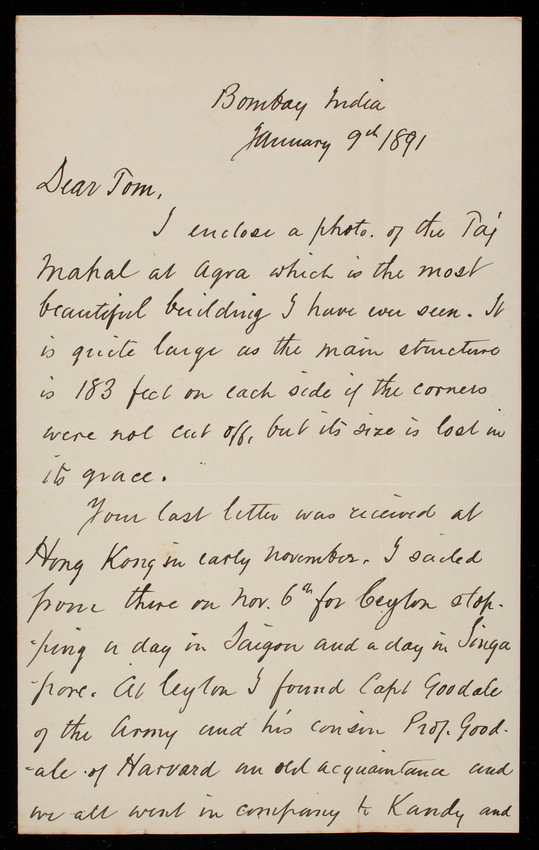 Bombay India
January 9th 1891
Dear Tom,
I enclose a photo. of the Taj
Mahal at Agra which is the most
beautiful building I have ever seen. It
is quite large as the main structure
is 183 feet on each side if the corners
were not cut off, but its size is lost in
its grace.
Your last letter was received at
Hong Kong in early November. I sailed
from there on Nov. 6th for Ceylon stop-
-ping a day in Saigon and a day in Singa
-pore. At Ceylon I found Capt Goodale
of the Army and his cousin Prof. Good-
-ale of Harvard an old acquaintance and
we all went in company to Kandy and